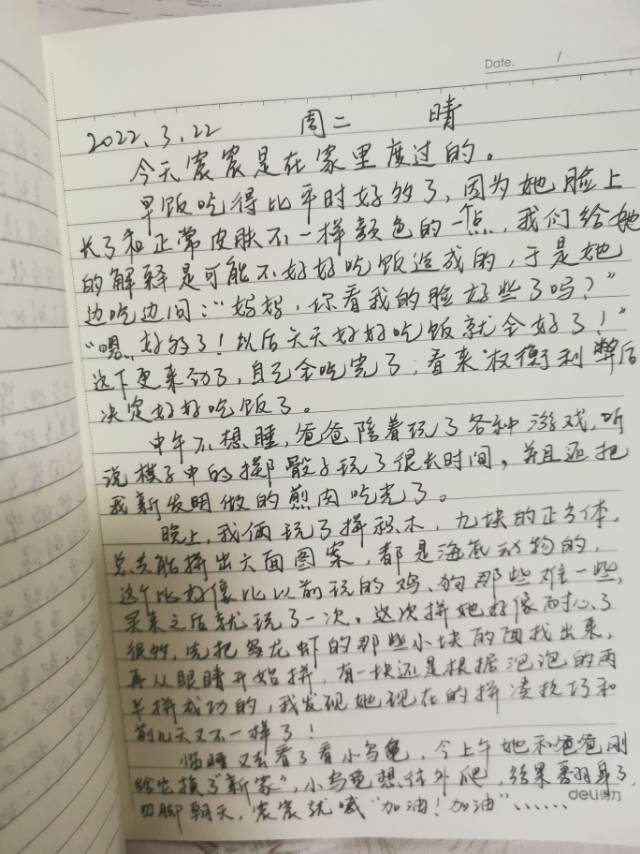 Date. /
2022.3.22 周二 晴
今天宸宸是在家里度过的。
早饭吃得比平时好多了，因为她脸上
长了和正常皮肤不一样颜色的一个点，我们给她
的解释是可能不好好吃饭造成的，于是她
边吃边问：“妈妈，你看我的脸好些了吗？”
“嗯，好多了！以后天天好好吃饭就会好了！”
这下更来劲了，自己全吃完了，看来权衡利弊后
决定好好吃饭了。
中午不想睡，爸爸陪着玩了各种游戏，听
说棋子中的掷骰子玩了很长时间，并且还把
我新发明做的煎肉吃光了。
晚上，我俩玩了拼积木，九块的正方体，
总共能拼出六面图案，都是海底动物的，
这个比好像比以前玩的鸡、狗那些难一些，
买来之后就玩了一次。这次拼她好像耐心了
很多，先把龙虾的那些小块的面找出来，
再从眼睛开始拼，有一块还是根据泡泡的两
半拼成功的，我发现她现在的拼凑技巧和
前几天又不一样了！
临睡又去看了看小乌龟，今上午她和爸爸刚
给它换了“新家”，小乌龟想往外爬，结果翻身了，
四脚朝天，宸宸就喊“加油！加油”……
deli得力